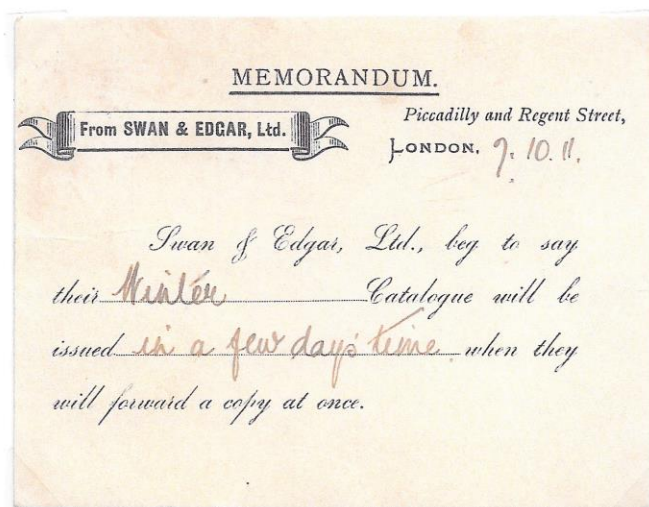 MEMORANDUM.
From SWAN & EDGAR, Ltd.
Piccadilly and Regent Street,
LONDON, 9.10.11.
Swan & Edgar, Ltd., beg to say
their Winter Catalogue will be
issued in a few days' time when they
will forward a copy at once.